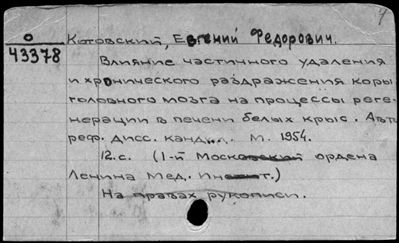 Котовский, Евгений Федорович.
О
43378
Влияние частичного удаления
и хронического раздражения коры
головного мозга на процессы реге-
нерации в печени белых крыс. Авт.
реф. дисс. канд... М. 1954.
12.с. (1-й Московский ордена
Ленина Мед. Инст.)
На правах рукописи.